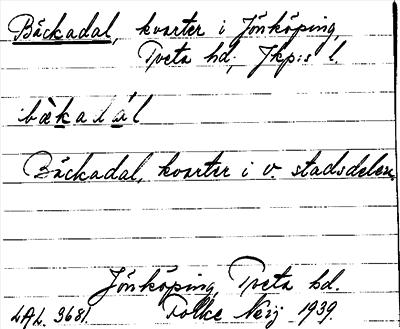 Bäckadal, kvarter i Jönköping,
Tveta hd; Jkp:s l.
bàkadál
Bäckadal, kvarter i v. stadsdelen.
Jönköping, Tveta hd.
LAL. 3681. Folke Neij 1939.